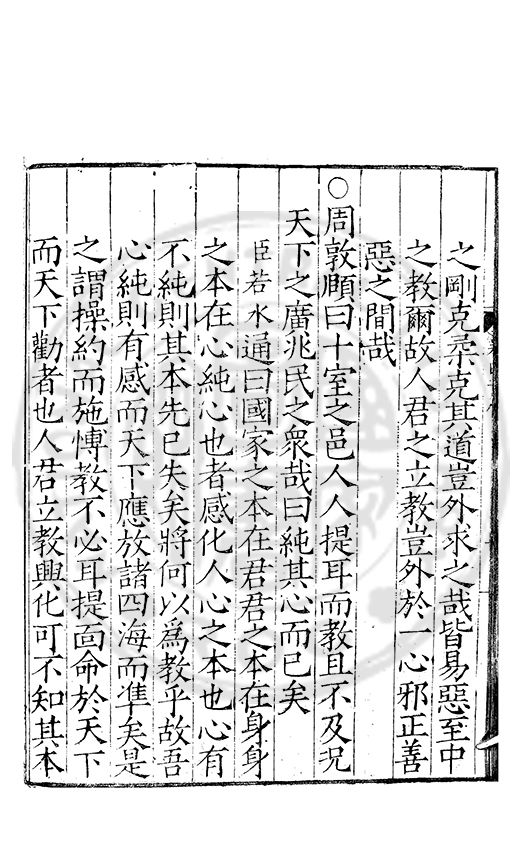 之剛克柔克其道豈外求之哉皆易惡至中
之教爾故人君之立教豈外於一心邪正善
惡之間哉
○周敦頤曰十室之邑人人提耳而教且不及況
天下之廣兆民之衆哉曰純其心而已矣
臣若水通曰國家之本在君君之本在身身
之本在心純心也者感化人心之本也心有
不純則其本先已失矣將何以爲教乎故吾
心純則有感而天下應放諸四海而準矣是
之謂操約而施博教不必耳提面命於天下
而天下勸者也人君立教興化可不知其本